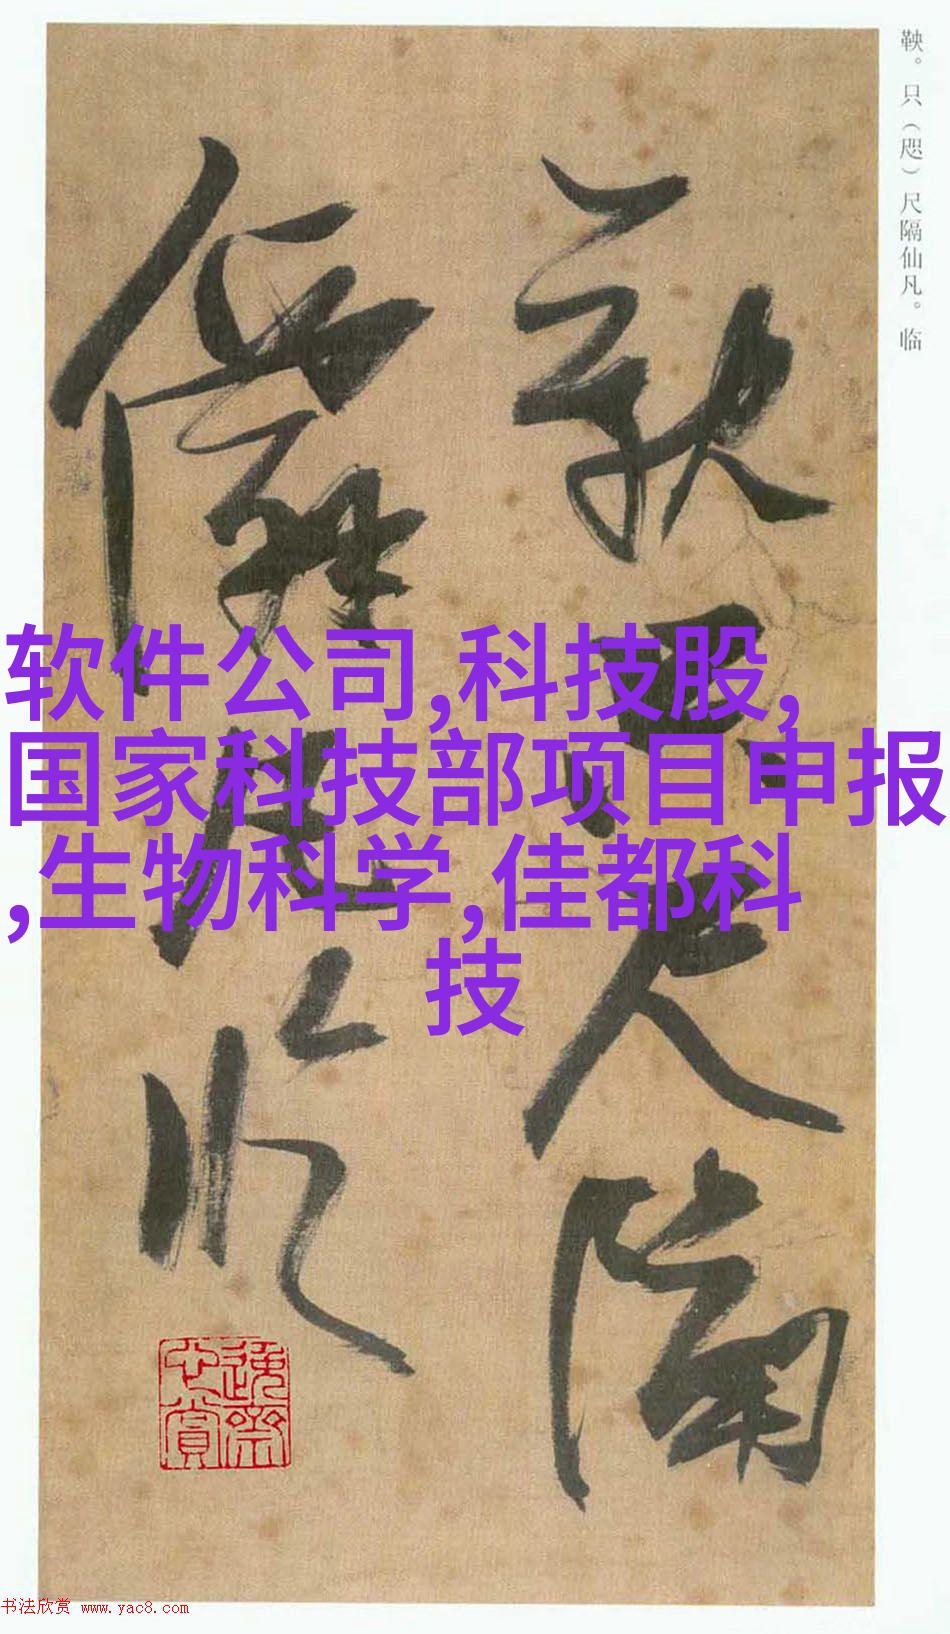 鞅。只（咫）尺隔仙凡。临
鞅只尺隔
仙凡临
软件公司,科技股,
国家科技部项目申报
,生物科学,佳都科
技
书法欣赏 www.yac8.com